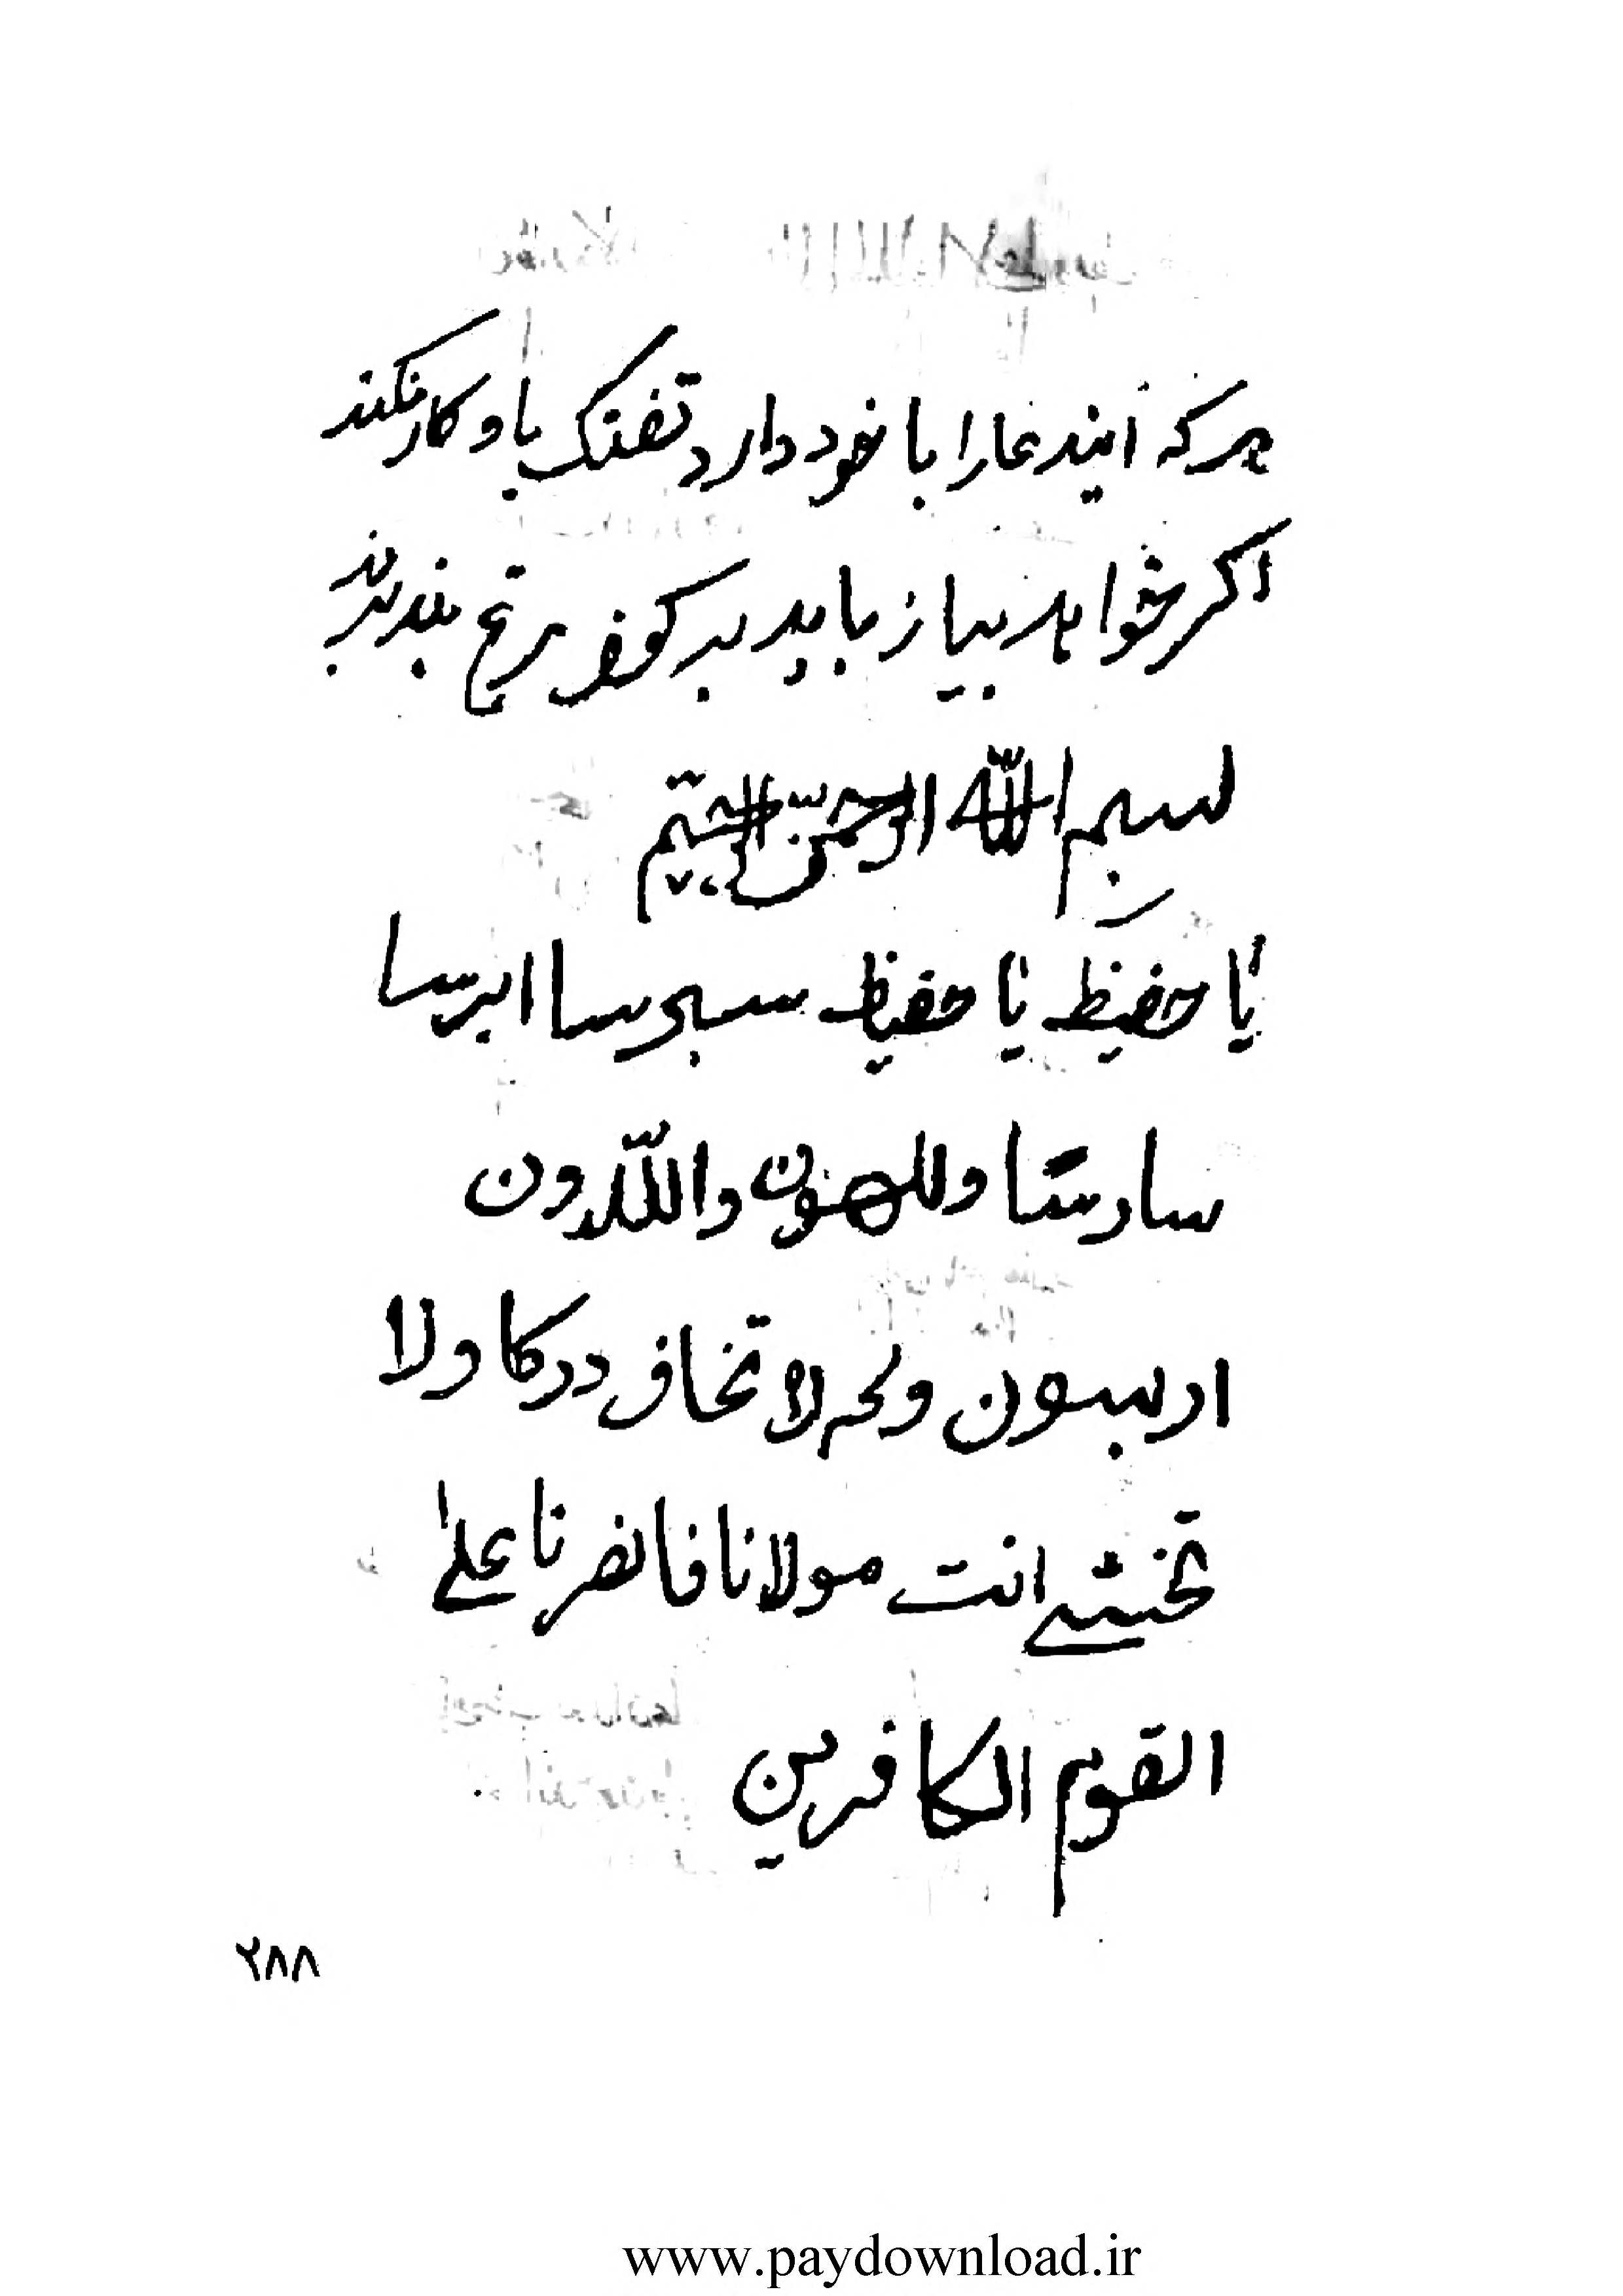 هرکه ایندعارا با خود دارد تفنک باو کار نکند
اکر خواهد بیازماید بر کوفر مرغ بندبزند
بسم الله الرحمن الرحیم
یا حفیظ یا حفیظ سبحرسا ابرسا
سارستا وللهون واللدون
ادبسون ولحم لا تخاف درکا ولا
تخشی انت مولانا فانصرنا علی
القوم الکافرین
۲۸۸
www.paydownload.ir